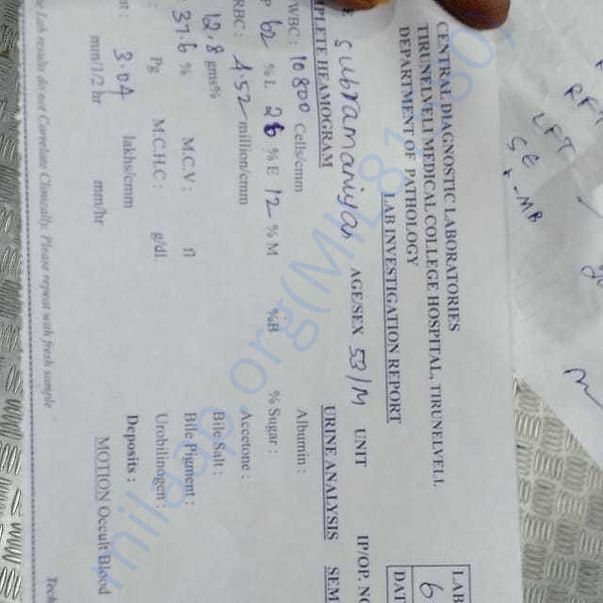 CENTRAL DIAGNOSTIC LABORATORIES
TIRUNELVELI MEDICAL COLLEGE HOSPITAL, TIRUNELVELI.
DEPARTMENT OF PATHOLOGY
LAB INVESTIGATION REPORT
LAB
6
DAT
Subramaniyan AGE/SEX 53/M UNIT IP/OP. NO
PLETE HEAMOGRAM URINE ANALYSIS SEM
WBC : 10800 Cells/cmm Albumin :
P 62 % L 26 % E 12 % M %B % Sugar :
RBC : 4.52 million/cmm Accetone :
12.8 gms% Bile Salt :
37.6 % M.C.V : fl Bile Pigment :
Pg M.C.H.C : g/dl. Urobilinogen :
nt : 3.04 lakhs/cmm Deposits :
mm/1/2 hr mm/hr MOTION Occult Blood
he Lab results do not Correlate Clinically. Please repeat with fresh sample
Tech
RFT
LFT
SE
-MB
milaap.org(MIL81